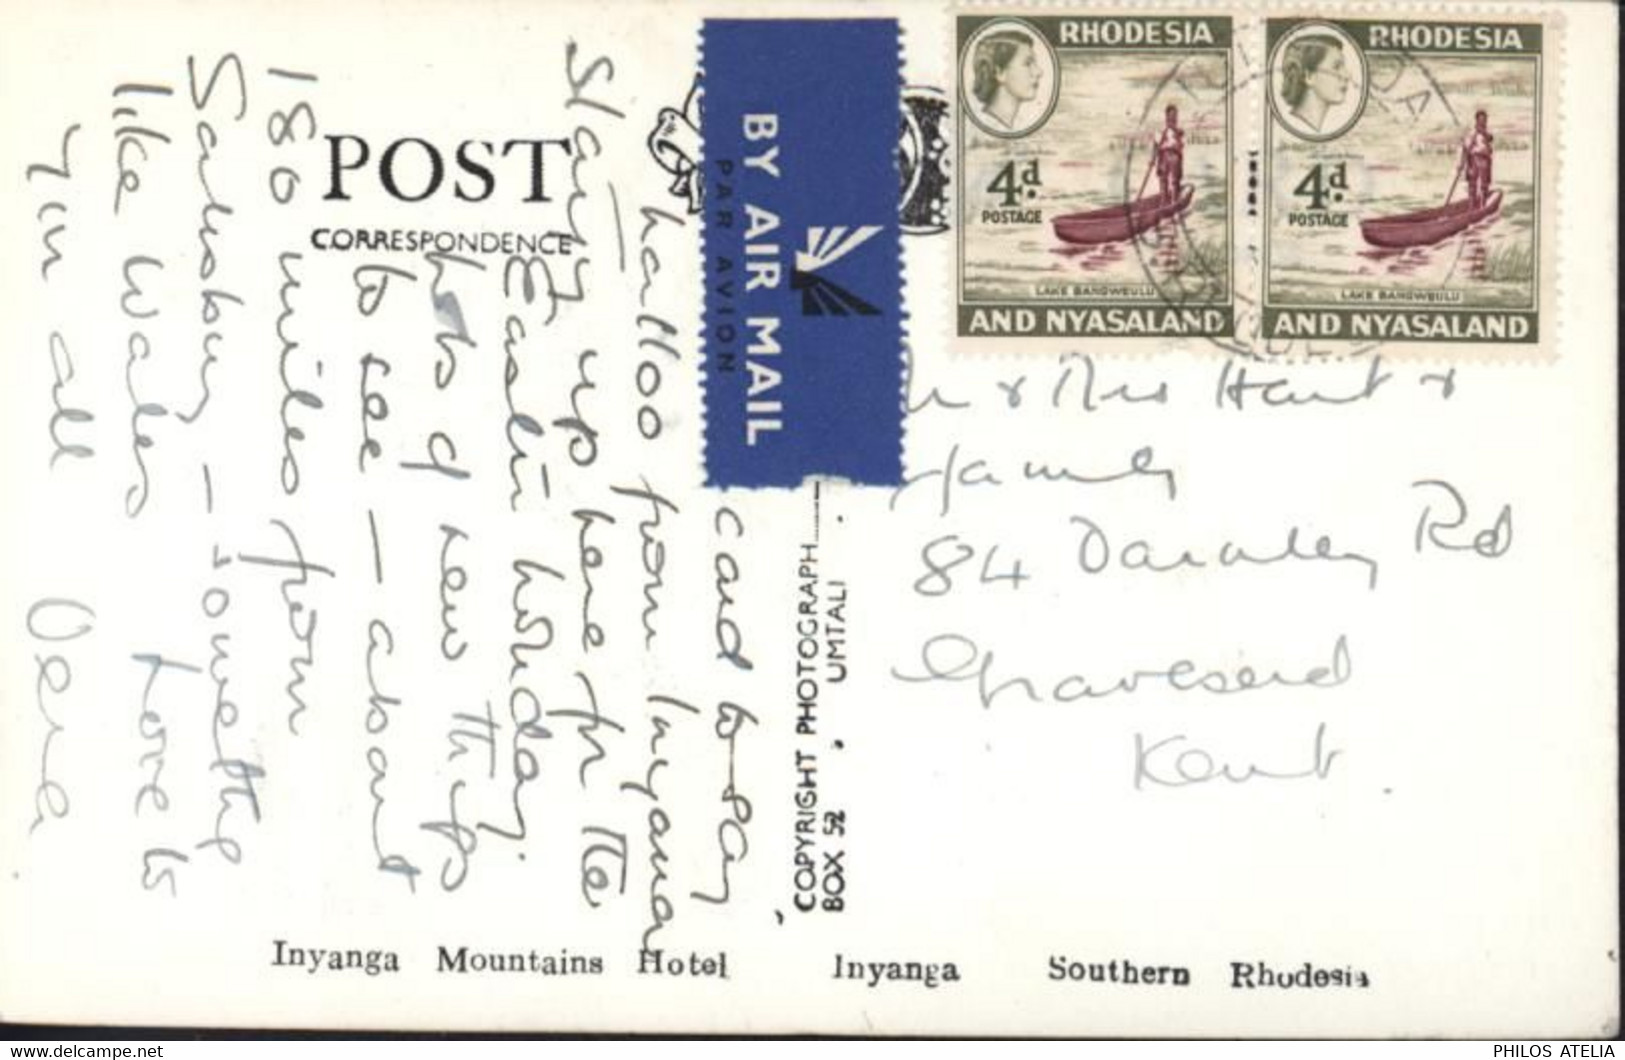 RHODESIA
4d.
POSTAGE
LAKE BANGWEULU
AND NYASALAND
RHODESIA
4d.
POSTAGE
LAKE BANGWEULU
AND NYASALAND
BY AIR MAIL
PAR AVION
POST
CORRESPONDENCE
card to say
halloo from Inyanga
Staying up here for the
Easter holiday.
Lots of new things
to see - about
180 miles from
Salisbury - somethg
like Wales
Love to
you all
Vera
COPYRIGHT PHOTOGRAPH
BOX 52 . UMTALI .
Mr & Mrs Hart &
family
84 Darnley Rd
Gravesend
Kent.
Inyanga Mountains Hotel Inyanga Southern Rhodesia
PHILOS ATELIA
www.delcampe.net